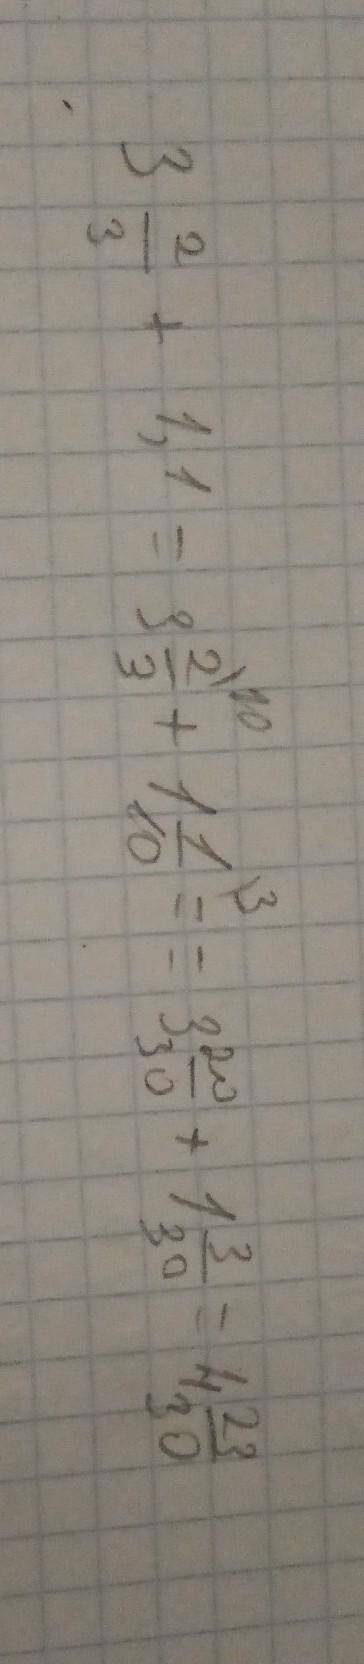 3 2/3 + 1,1 = 3 2/3 \10 + 1 1/10 \3 = = 3 20/30 + 1 3/30 = 4 23/30